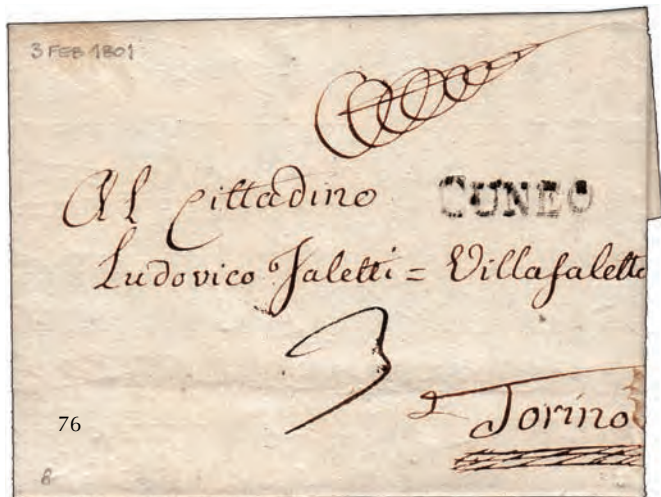 3 FEB 1801
Al Cittadino CUNEO
Ludovico Faletti = Villafaletto
3
Torino
76